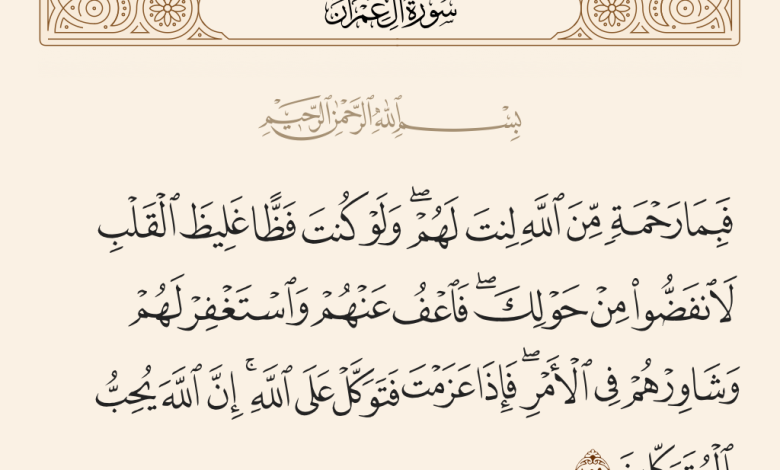 سُورَةُ آلِ عِمْرَانَ
بِسْمِ ٱللَّهِ ٱلرَّحْمَٰنِ ٱلرَّحِيمِ
فَبِمَا رَحْمَةٍ مِّنَ ٱللَّهِ لِنتَ لَهُمْ ۖ وَلَوْ كُنتَ فَظًّا غَلِيظَ ٱلْقَلْبِ
لَٱنفَضُّوا۟ مِنْ حَوْلِكَ ۖ فَٱعْفُ عَنْهُمْ وَٱسْتَغْفِرْ لَهُمْ
وَشَاوِرْهُمْ فِى ٱلْأَمْرِ ۖ فَإِذَا عَزَمْتَ فَتَوَكَّلْ عَلَى ٱللَّهِ ۚ إِنَّ ٱللَّهَ يُحِبُّ
ٱلْمُتَوَكِّلِينَ